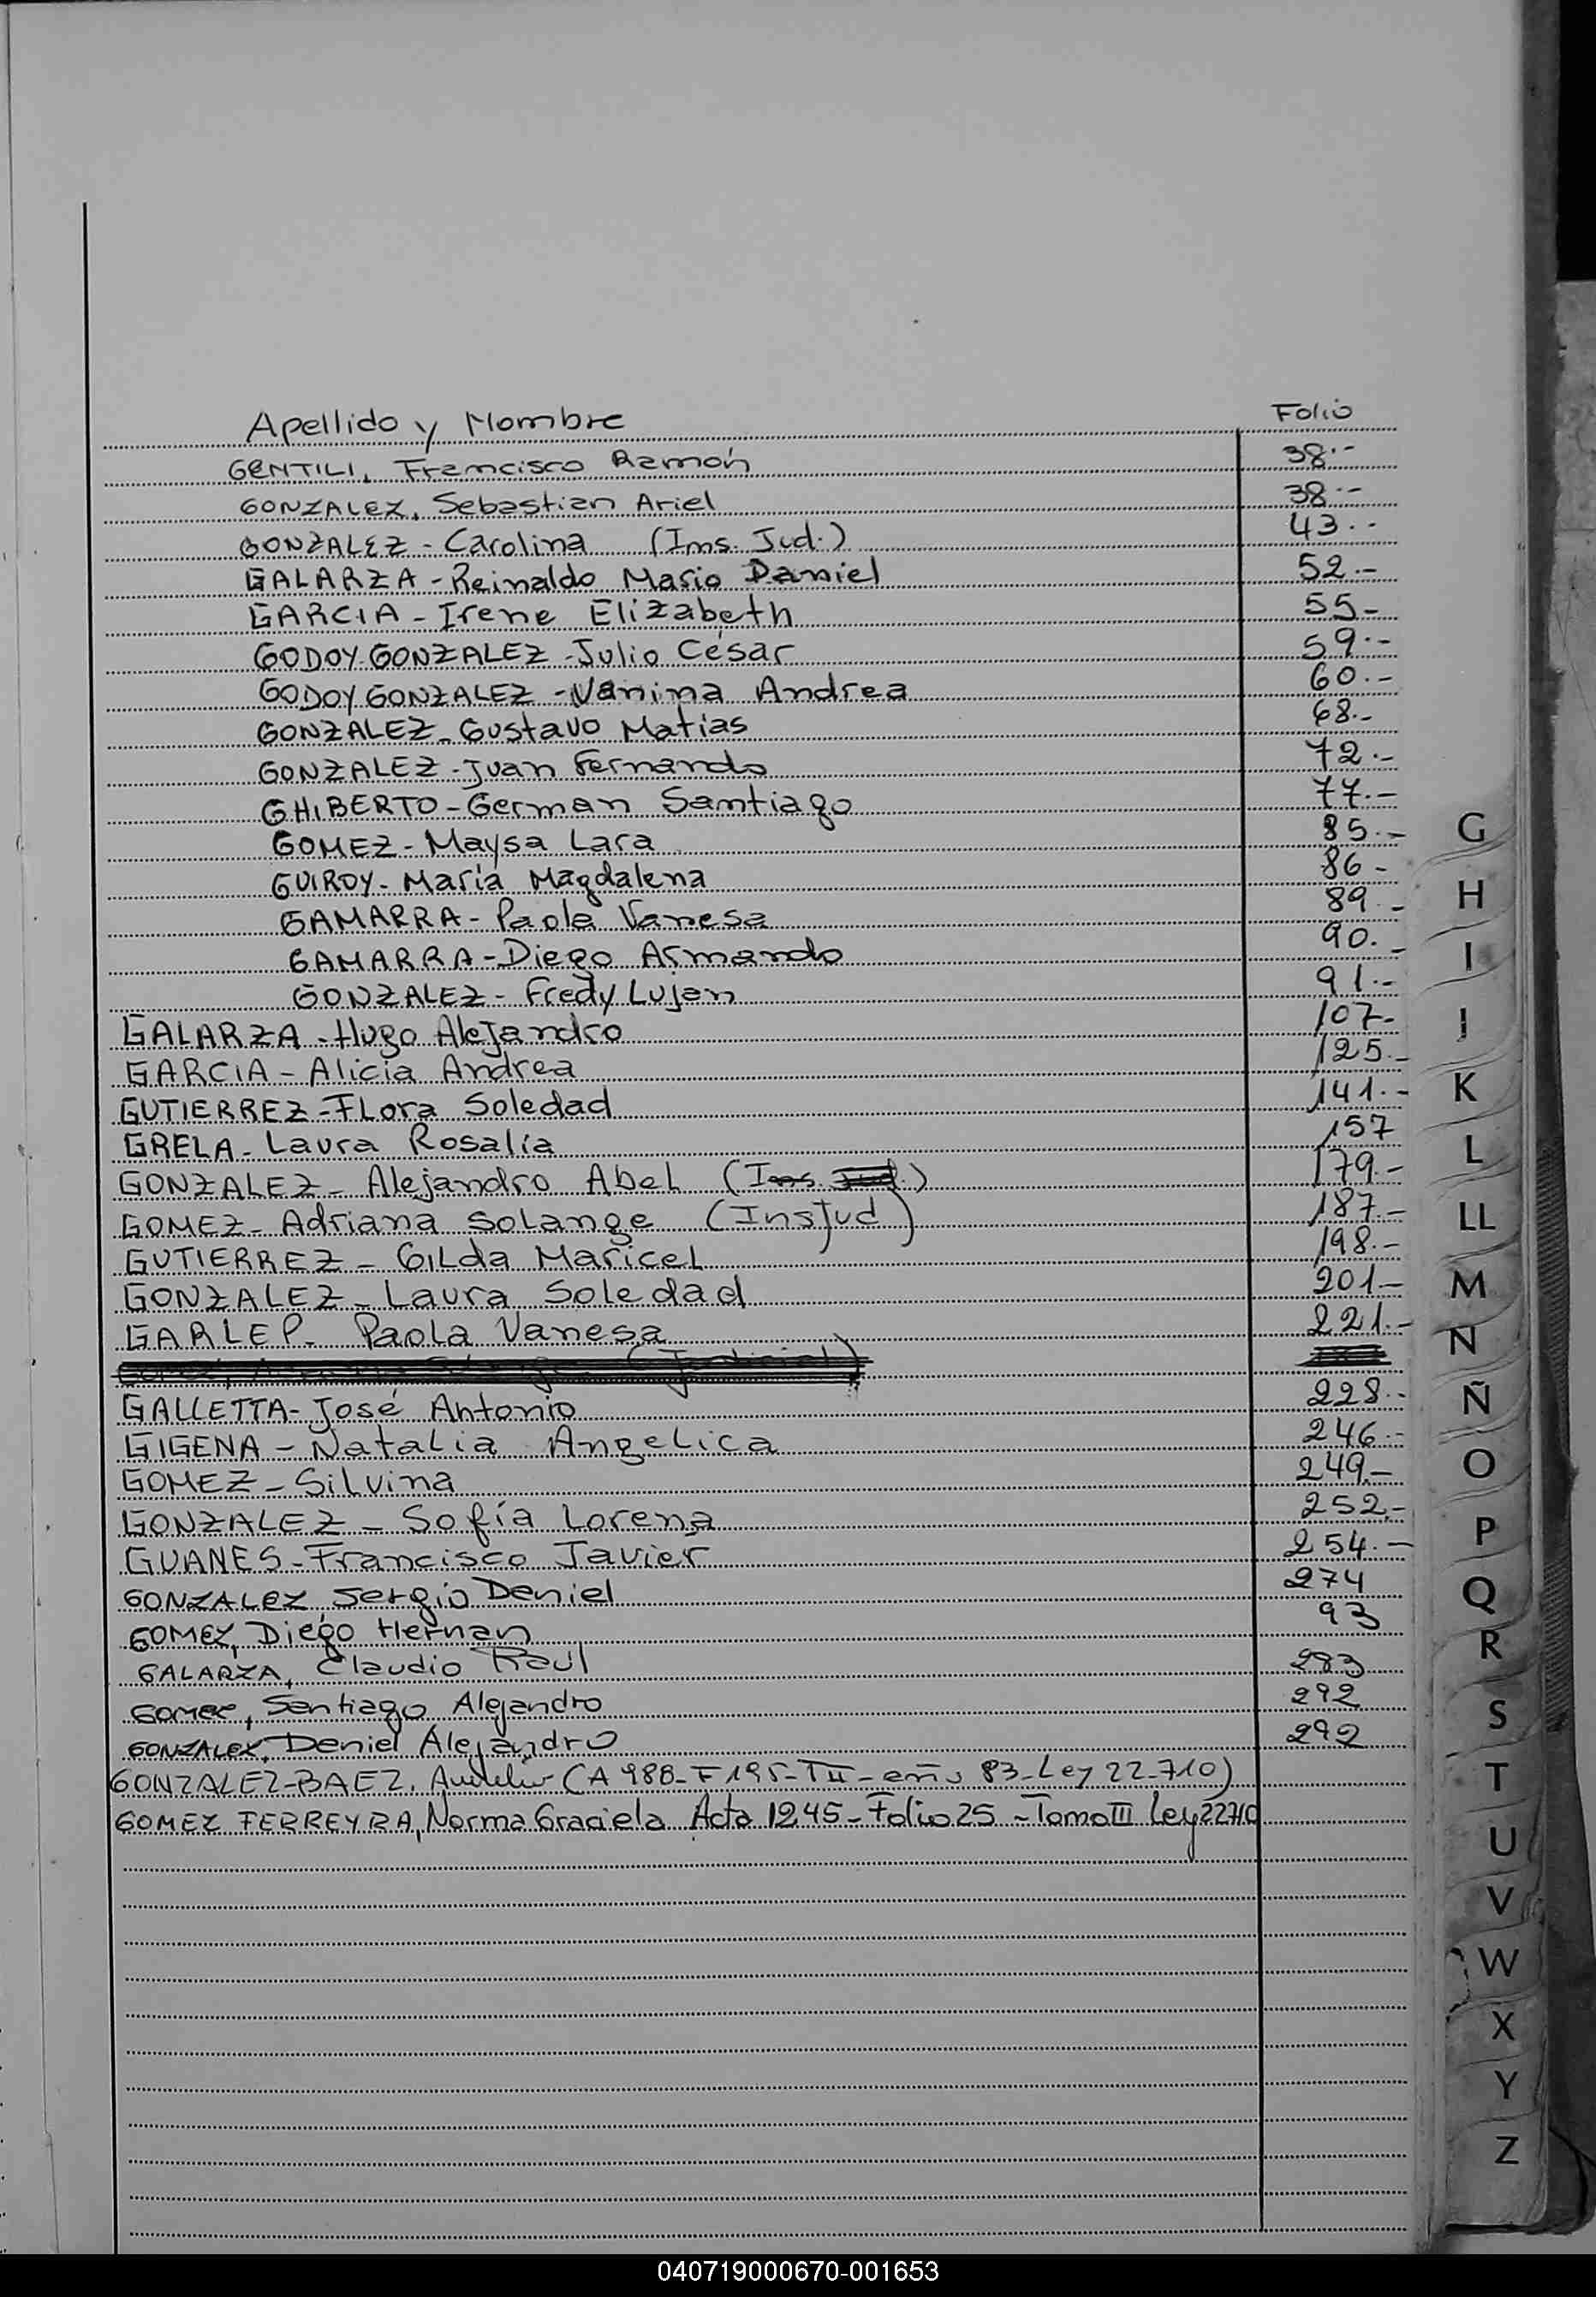 Apellido y Nombre Folio
GENTILI, Francisco Ramón 38.-
GONZALEZ, Sebastian Ariel 38.-
GONZALEZ - Carolina (Ins. Jud.) 43.-
GALARZA - Reinaldo Mario Daniel 52.-
GARCIA - Irene Elizabeth 55-
GODOY GONZALEZ - Julio César 59.-
GODOY GONZALEZ - Vanina Andrea 60.-
GONZALEZ - Gustavo Matías 68.-
GONZALEZ - Juan Fernando 72.-
GHIBERTO - German Santiago 77.-
GOMEZ - Maysa Lara 85.-
GUIROY - María Magdalena 86-
GAMARRA - Paola Vanesa 89.-
GAMARRA - Diego Armando 90.-
GONZALEZ - Fredy Lujan 91.-
GALARZA - Hugo Alejandro 107-
GARCIA - Alicia Andrea 125.-
GUTIERREZ - FLora Soledad 141.-
GRELA - Laura Rosalía 157
GONZALEZ - Alejandro Abel (Ins. Jud.) 179.-
GOMEZ - Adriana Solange (InsJud) 187.-
GUTIERREZ - GILda Maricel 198.-
GONZALEZ - Laura Soledad 201-
GARLEP - Paola Vanesa 221.-
GALLETTA - José Antonio 228.-
GIGENA - Natalia Angelica 246.-
GOMEZ - Silvina 249.-
GONZALEZ - Sofía Lorena 252.-
GUANES - Francisco Javier 254.-
GONZALEZ, Sergio Daniel 274
GOMEZ, Diego Hernan 93
GALARZA, Claudio Raul 283
GOMEZ, Santiago Alejandro 292
GONZALEZ, Daniel Alejandro 292
GONZALEZ-BAEZ, (A 988-F 195-T II - año 83-Ley 22.710)
GOMEZ FERREYRA, Norma Graciela Acta 1245 - Folio 25 - Tomo III Ley 22710
G
H
I
J
K
L
LL
M
N
Ñ
O
P
Q
R
S
T
U
V
W
X
Y
Z
040719000670-001653